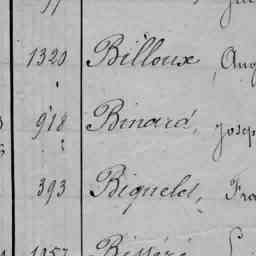 1320 Billoux, Aug
918 Binard, Josep
393 Biquelet, Fra
1957 Bisséri